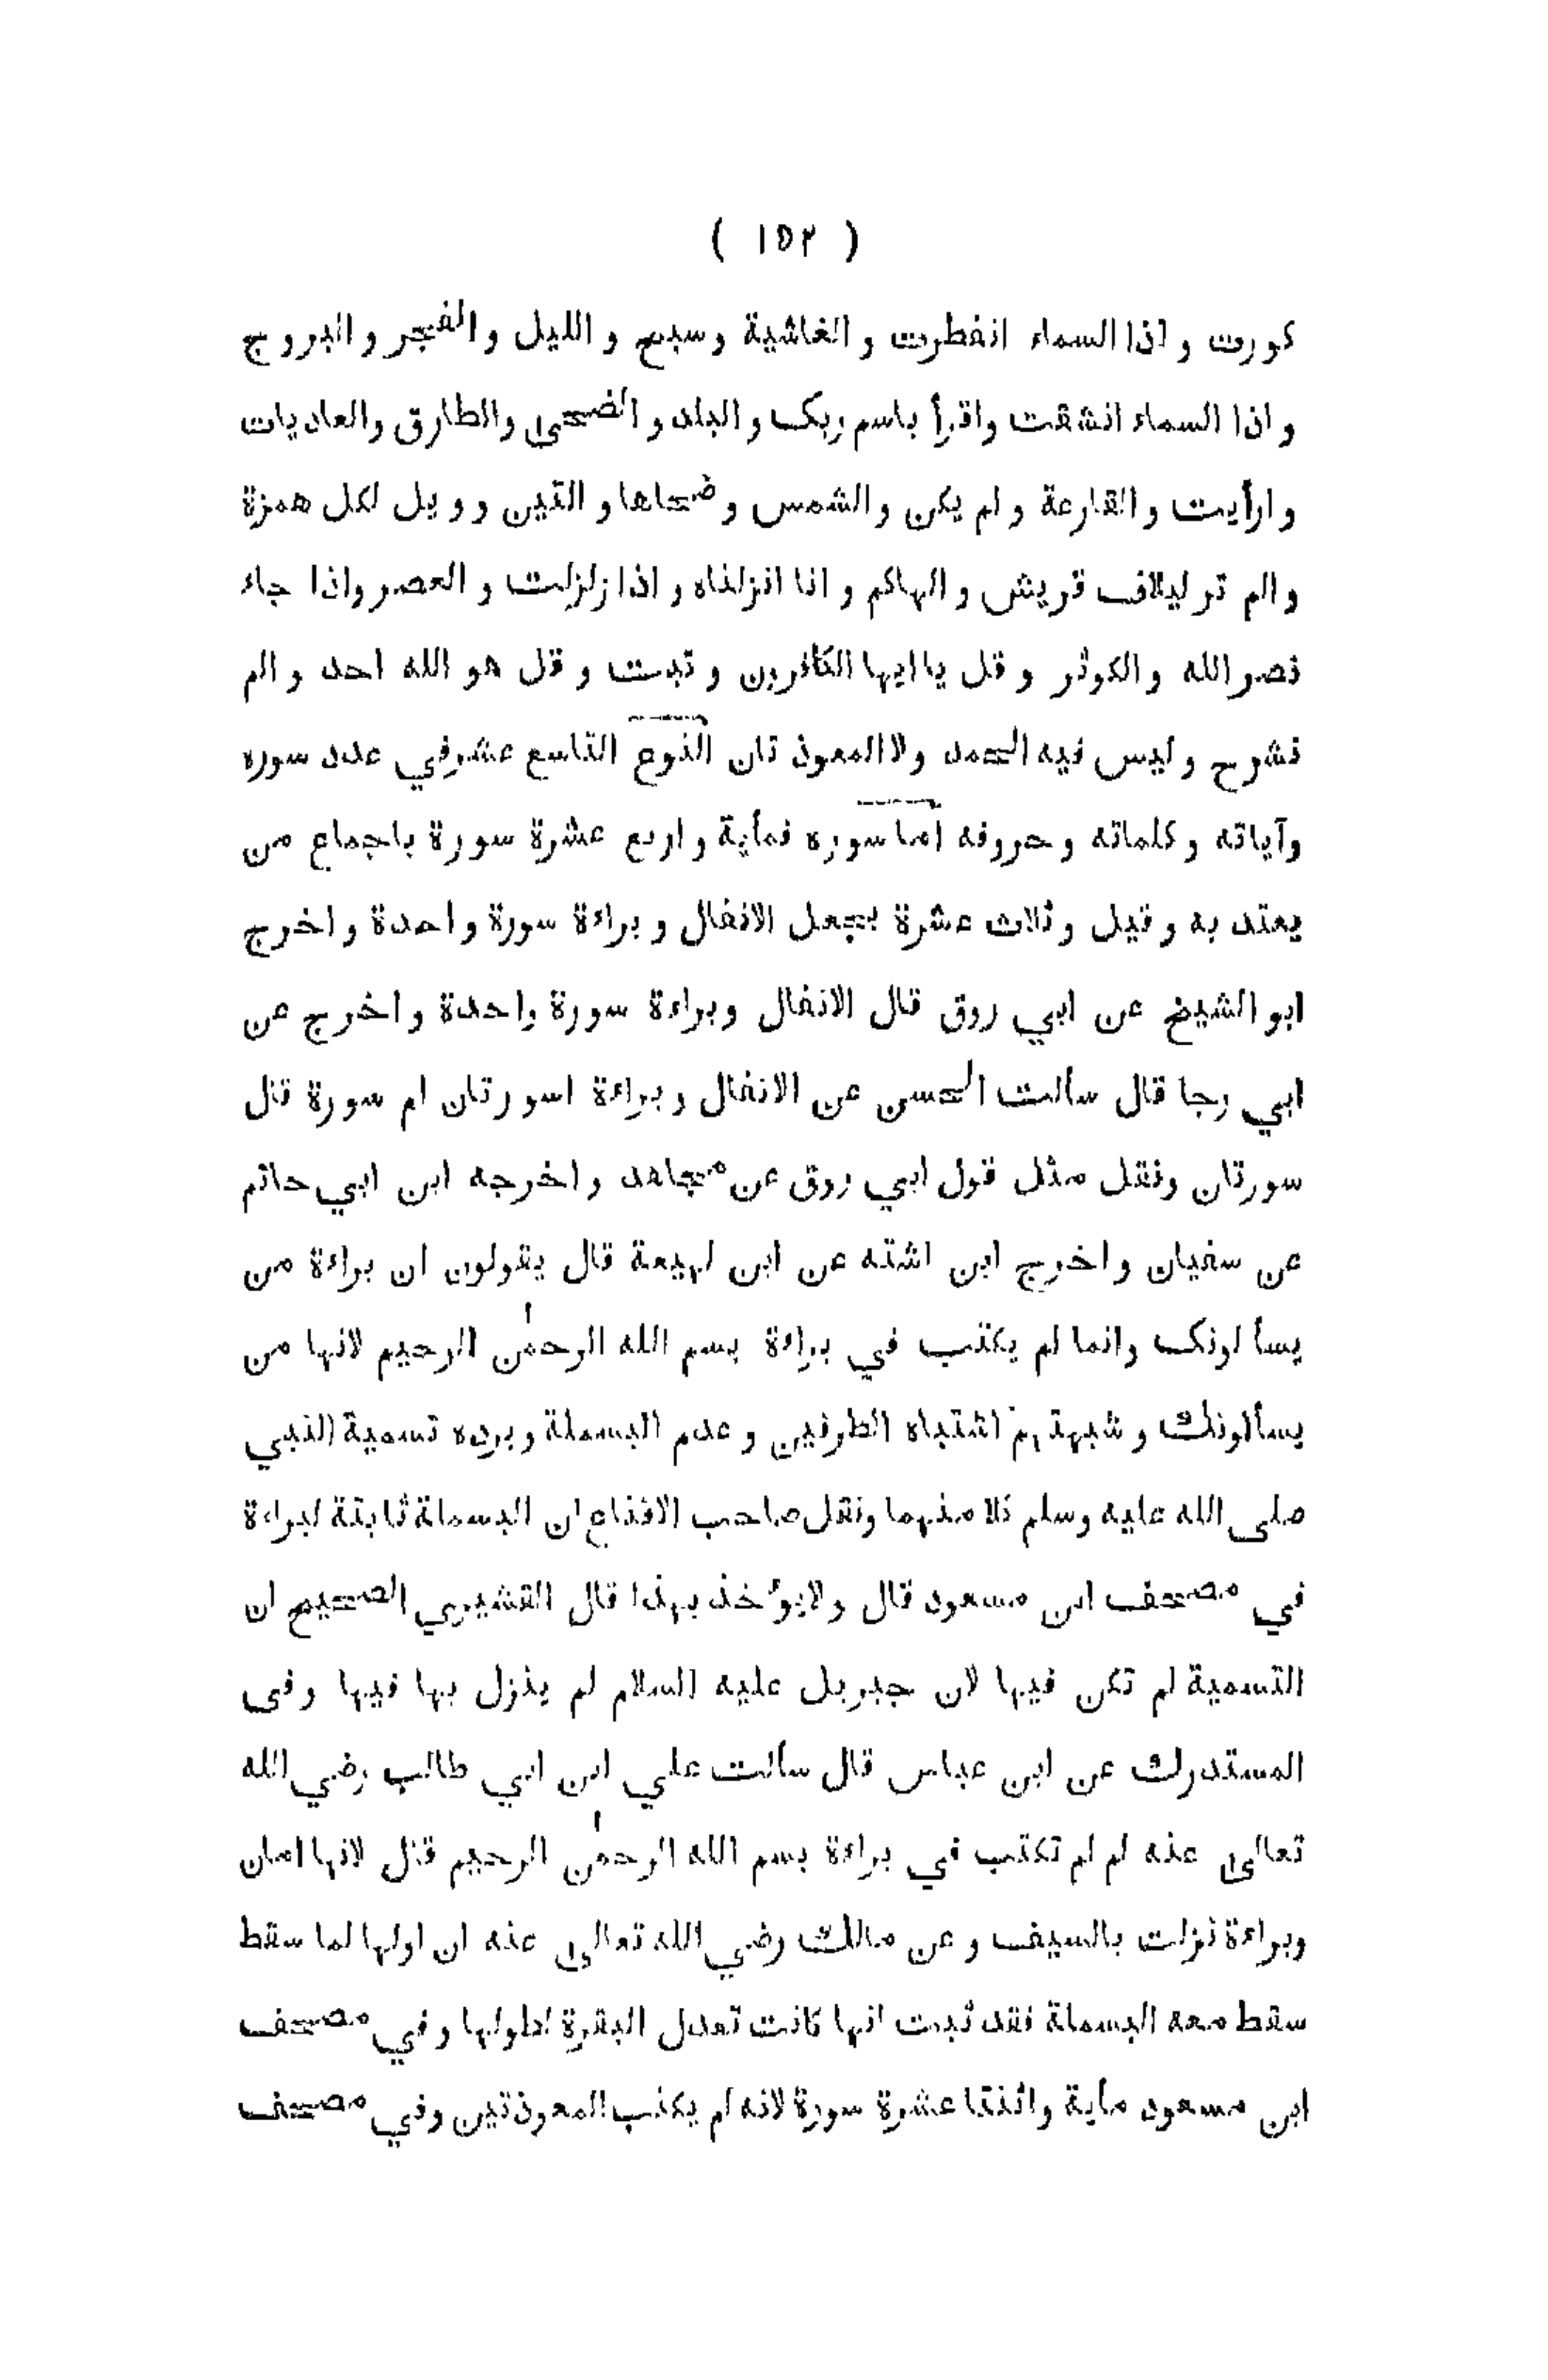 ( ١٥٢ )
كورت و اذا السماء انفطرت و الغاشية و سبح و الليل و الفجر و البروج
و اذا السماء انشقت واقرأ باسم ربك و البلد و الضحى والطارق والعاديات
و ارأيت و القارعة و لم يكن و الشمس و ضحاها و التين و ويل لكل همزة
و الم تر ليلاف قريش و الهاكم و انا انزلناه و اذا زلزلت و العصر واذا جاء
نصر الله و الكوثر و قل يا ايها الكافرون و تبت و قل هو الله احد و الم
نشرح و ليس فيه الحمد ولا المعوذ تان النوع التاسع عشرفي عدد سوره
وآياته و كلماته و حروفه اما سوره فمأية و اربع عشرة سورة باجماع من
يعتد به و قيل و ثلاث عشرة بجعل الانفال و براءة سورة واحدة و اخرج
ابو الشيخ عن ابي روق قال الانفال وبراءة سورة واحدة و اخرج عن
ابي رجا قال سألت الحسن عن الانفال و براءة اسورتان ام سورة قال
سورتان ونقل مثل قول ابي روق عن مجاهد و اخرجه ابن ابي حاتم
عن سفيان و اخرج ابن اشته عن ابن لهيعة قال يقولون ان براءة من
يسأ لونك وانما لم يكتب في براءة بسم الله الرحمٰن الرحيم لانها من
يسألونك و شبهتهم اشتباه الطرفين و عدم البسملة ويرده تسمية النبي
صلى الله عليه وسلم كلا منهما ونقل صاحب الاقناع ان البسملة ثابتة لبراءة
في مصحف ابن مسعود قال ولايؤخذ بهذا قال القشيري الصحيح ان
التسمية لم تكن فيها لان جبريل عليه السلام لم ينزل بها فيها وفى
المستدرك عن ابن عباس قال سألت علي ابن ابي طالب رضي الله
تعالى عنه لم لم تكتب في براءة بسم الله الرحمٰن الرحيم قال لانها امان
وبراءة نزلت بالسيف و عن مالك رضي الله تعالى عنه ان اولها لما سقط
سقط معه البسملة فقد ثبت انها كانت تعدل البقرة لطولها وفي مصحف
ابن مسعود مأية واثنتا عشرة سورة لانه لم يكتب المعوذتين وفي مصحف